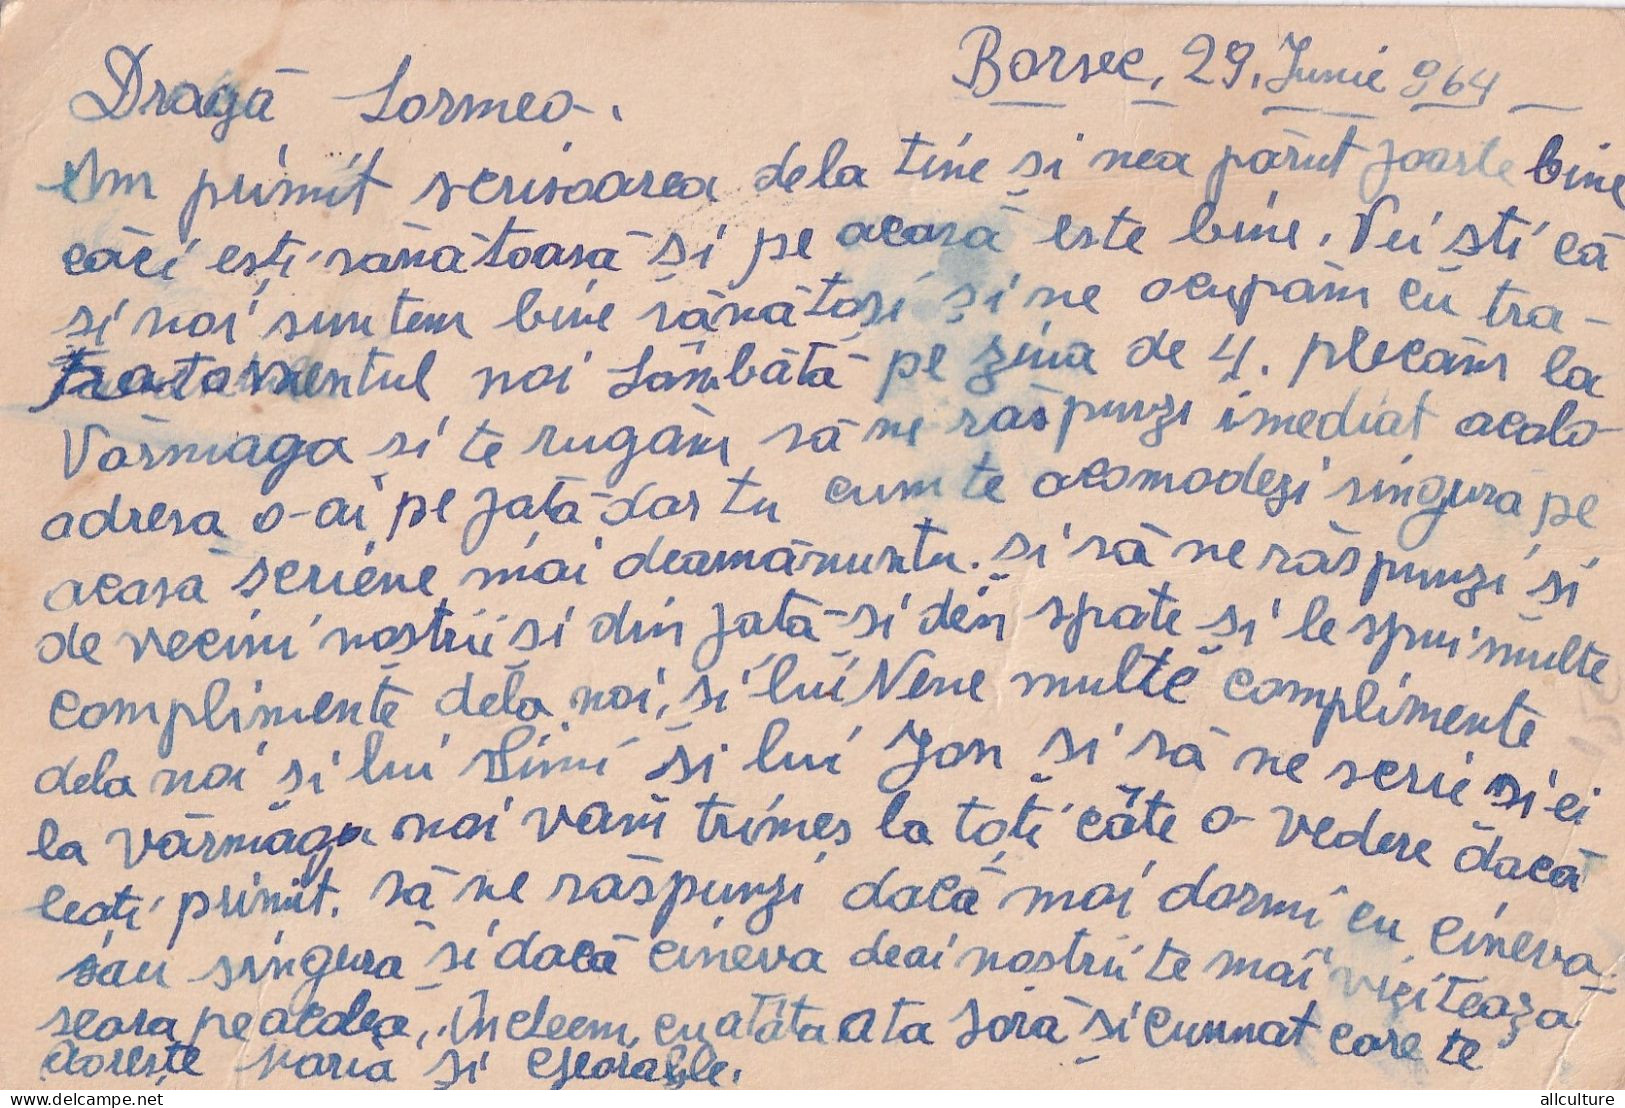 Borsec, 29. Junie 964
Dragă
Am primit scrisoarea dela tine și nea părut foarte bine
căci ești sănătoasă și pe acasă este bine. Vei sti că
și noi suntem bine sănătoși și ne ocupăm cu tra-
tatamentul noi Sâmbătă pe zina de 4. plecăm la
Vărmaga si te rugăm să ne răspunzi imediat acolo
adresa o-ai pe fată dar tu cum te acomodezi singură pe
acasă seriene mai deamănuntu. și să ne răspunzi și
de vecini nostrii și din fată-si din spate și le spui multe
complimente dela noi, și lui Nene multe complimente
dela noi si lui și lui Jon și să ne scrie și ei
la vărmăga noi vam trimes la toti câte o vedere dacă
leati primit. să ne răspunzi dacă mai dormi cu cineva
sau singură si dacă cineva deai nostrii te mai viziteaza
seara pe acolea, Încleem cu atâta a ta soră și cumnat care te
dorește Maria și
allculture